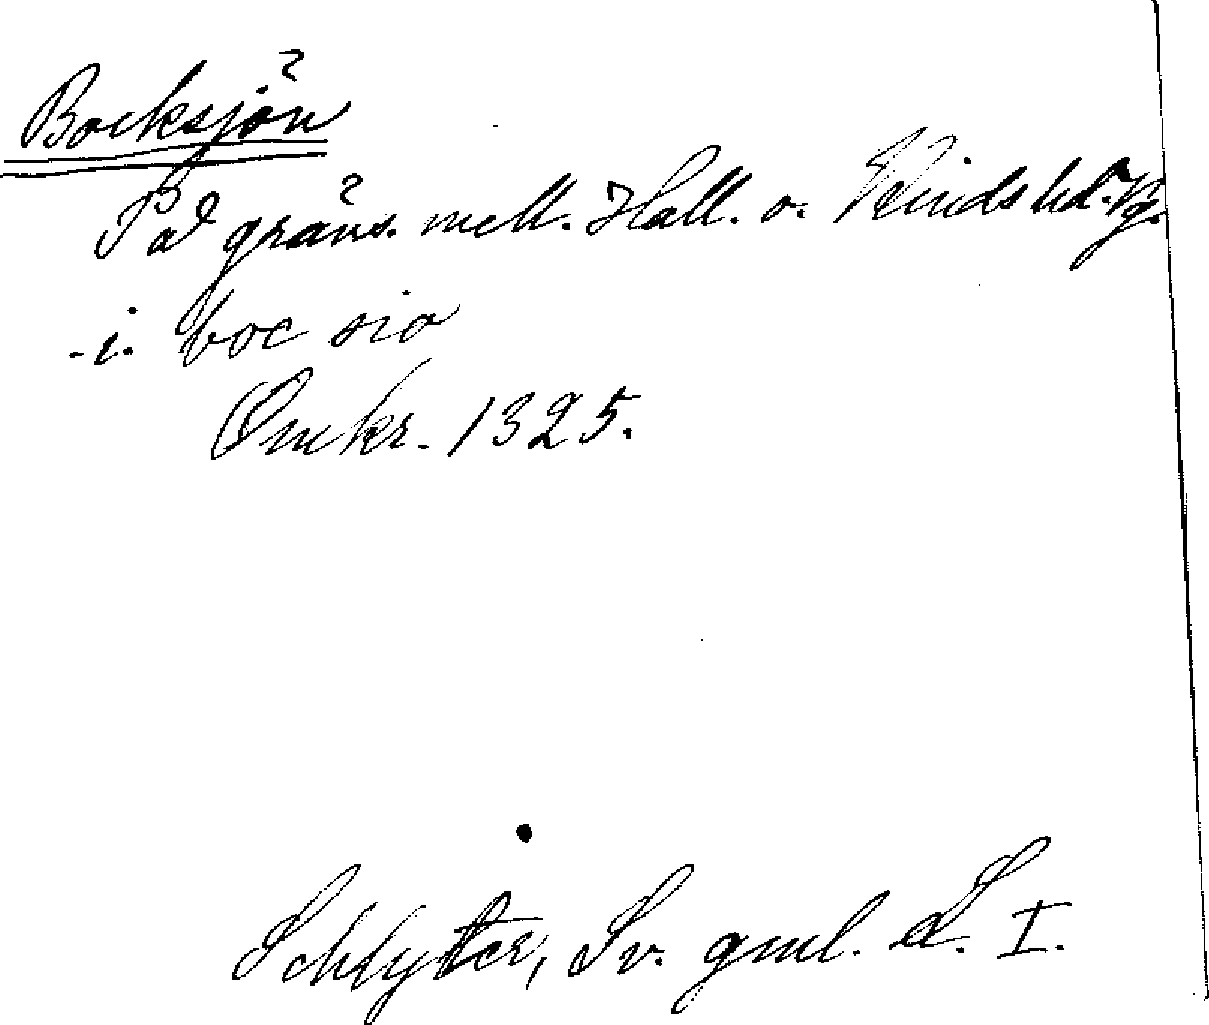 Bocksjön
På gräns. mell. Hall. o. Kinds hd. Vg.
-i. boc sio
Omkr. 1325.
Schlyter, Sv. gml. L. I.